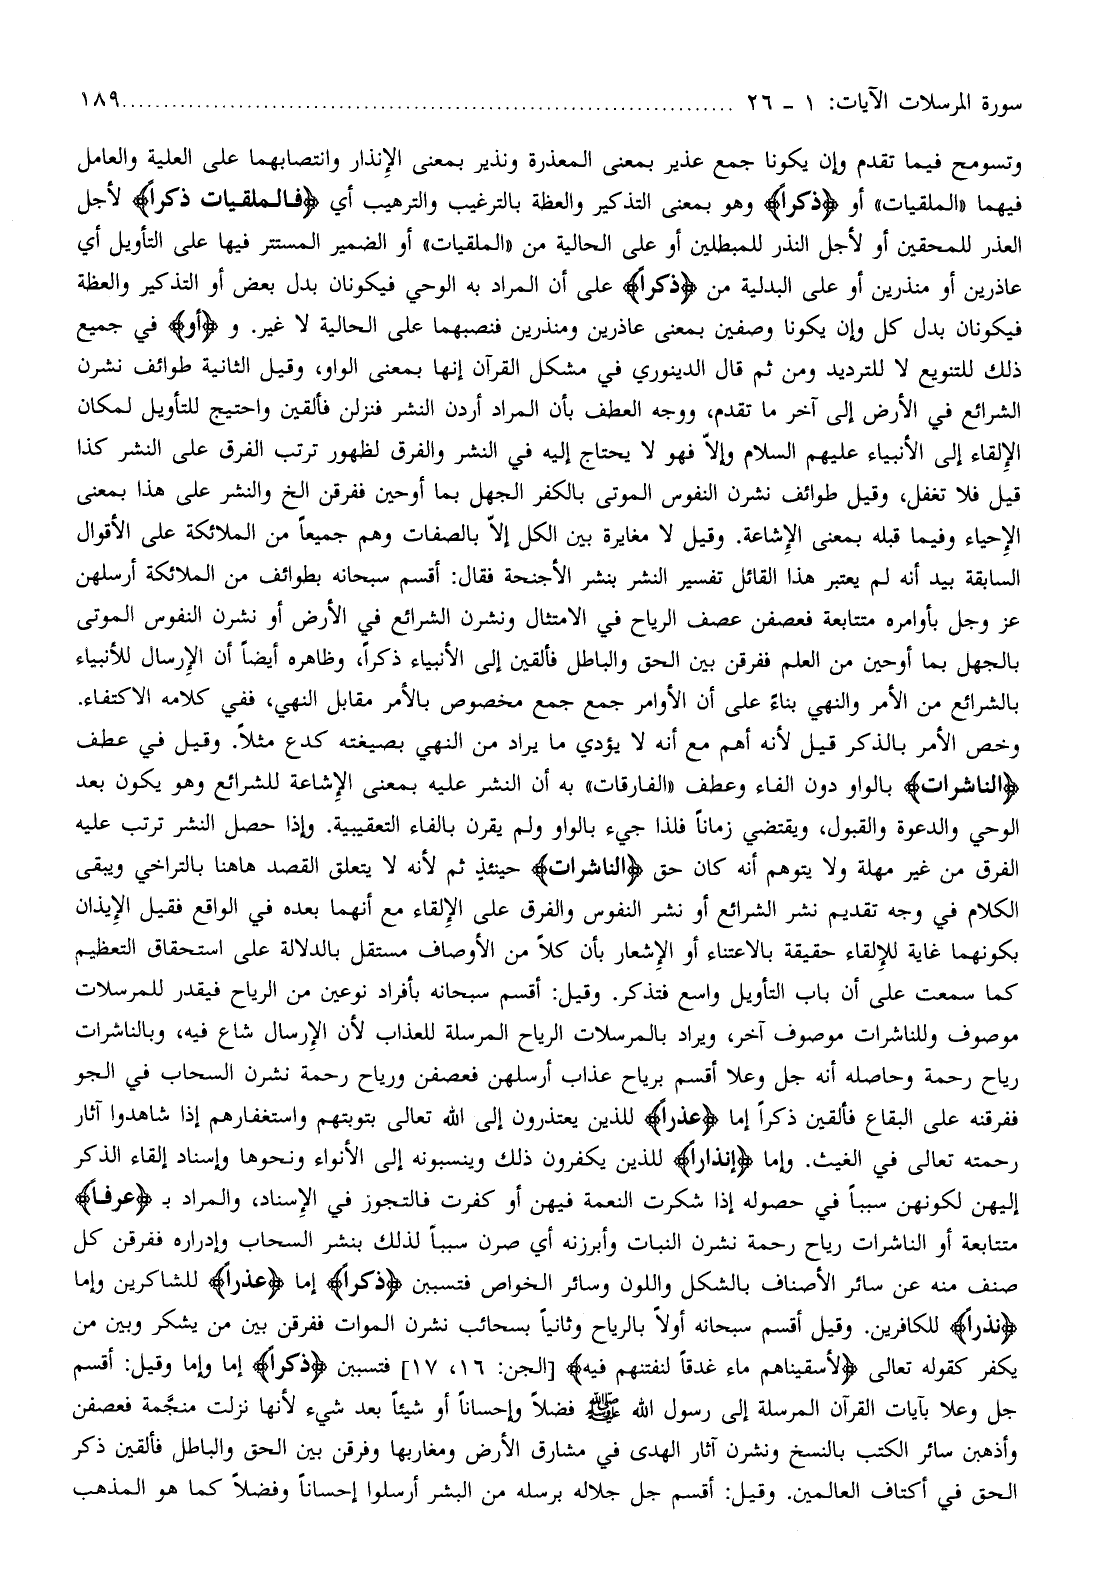 سورة المرسلات الآيات: ١ - ٢٦ ........................................................................... ١٨٩
وتسومح فيما تقدم وإن يكونا جمع عذير بمعنى المعذرة ونذير بمعنى الإنذار وانتصابهما على العلية والعامل
فيهما «الملقيات» أو ﴿ذكراً﴾ وهو بمعنى التذكير والعظة بالترغيب والترهيب أي ﴿فالملقيات ذكراً﴾ لأجل
العذر للمحقين أو لأجل النذر للمبطلين أو على الحالية من «الملقيات» أو الضمير المستتر فيها على التأويل أي
عاذرين أو منذرين أو على البدلية من ﴿ذكراً﴾ على أن المراد به الوحي فيكونان بدل بعض أو التذكير والعظة
فيكونان بدل كل وإن يكونا وصفين بمعنى عاذرين ومنذرين فنصبهما على الحالية لا غير. و ﴿أو﴾ في جميع
ذلك للتنويع لا للترديد ومن ثم قال الدينوري في مشكل القرآن إنها بمعنى الواو، وقيل الثانية طوائف نشرن
الشرائع في الأرض إلى آخر ما تقدم، ووجه العطف بأن المراد أردن النشر فنزلن فألقين واحتيج للتأويل لمكان
الإلقاء إلى الأنبياء عليهم السلام وإلاّ فهو لا يحتاج إليه في النشر والفرق لظهور ترتب الفرق على النشر كذا
قيل فلا تغفل، وقيل طوائف نشرن النفوس الموتى بالكفر الجهل بما أوحين ففرقن الخ والنشر على هذا بمعنى
الإحياء وفيما قبله بمعنى الإشاعة. وقيل لا مغايرة بين الكل إلاّ بالصفات وهم جميعاً من الملائكة على الأقوال
السابقة بيد أنه لم يعتبر هذا القائل تفسير النشر بنشر الأجنحة فقال: أقسم سبحانه بطوائف من الملائكة أرسلهن
عز وجل بأوامره متتابعة فعصفن عصف الرياح في الامتثال ونشرن الشرائع في الأرض أو نشرن النفوس الموتى
بالجهل بما أوحين من العلم ففرقن بين الحق والباطل فألقين إلى الأنبياء ذكراً، وظاهره أيضاً أن الإرسال للأنبياء
بالشرائع من الأمر والنهي بناءً على أن الأوامر جمع جمع مخصوص بالأمر مقابل النهي، ففي كلامه الاكتفاء.
وخص الأمر بالذكر قيل لأنه أهم مع أنه لا يؤدي ما يراد من النهي بصيغته كدع مثلاً. وقيل في عطف
﴿الناشرات﴾ بالواو دون الفاء وعطف «الفارقات» به أن النشر عليه بمعنى الإشاعة للشرائع وهو يكون بعد
الوحي والدعوة والقبول، ويقتضي زماناً فلذا جيء بالواو ولم يقرن بالفاء التعقيبية. وإذا حصل النشر ترتب عليه
الفرق من غير مهلة ولا يتوهم أنه كان حق ﴿الناشرات﴾ حينئذٍ ثم لأنه لا يتعلق القصد هاهنا بالتراخي ويبقى
الكلام في وجه تقديم نشر الشرائع أو نشر النفوس والفرق على الإلقاء مع أنهما بعده في الواقع فقيل الإيذان
بكونهما غاية للإلقاء حقيقة بالاعتناء أو الإشعار بأن كلاً من الأوصاف مستقل بالدلالة على استحقاق التعظيم
كما سمعت على أن باب التأويل واسع فتذكر. وقيل: أقسم سبحانه بأفراد نوعين من الرياح فيقدر للمرسلات
موصوف وللناشرات موصوف آخر، ويراد بالمرسلات الرياح المرسلة للعذاب لأن الإرسال شاع فيه، وبالناشرات
رياح رحمة وحاصله أنه جل وعلا أقسم برياح عذاب أرسلهن فعصفن ورياح رحمة نشرن السحاب في الجو
ففرقنه على البقاع فألقين ذكراً إما ﴿عذراً﴾ للذين يعتذرون إلى الله تعالى بتوبتهم واستغفارهم إذا شاهدوا آثار
رحمته تعالى في الغيث. وإما ﴿إنذاراً﴾ للذين يكفرون ذلك وينسبونه إلى الأنواء ونحوها وإسناد إلقاء الذكر
إليهن لكونهن سبباً في حصوله إذا شكرت النعمة فيهن أو كفرت فالتجوز في الإسناد، والمراد بـ ﴿عرفاً﴾
متتابعة أو الناشرات رياح رحمة نشرن النبات وأبرزنه أي صرن سبباً لذلك بنشر السحاب وإدراره ففرقن كل
صنف منه عن سائر الأصناف بالشكل واللون وسائر الخواص فتسببن ﴿ذكراً﴾ إما ﴿عذراً﴾ للشاكرين وإما
﴿نذراً﴾ للكافرين. وقيل أقسم سبحانه أولاً بالرياح وثانياً بسحائب نشرن الموات ففرقن بين من يشكر وبين من
يكفر كقوله تعالى ﴿لأسقيناهم ماء غدقاً لنفتنهم فيه﴾ [الجن: ١٦، ١٧] فتسببن ﴿ذكراً﴾ إما وإما وقيل: أقسم
جل وعلا بآيات القرآن المرسلة إلى رسول الله ﷺ فضلاً وإحساناً أو شيئاً بعد شيء لأنها نزلت منجَّمة فعصفن
وأذهبن سائر الكتب بالنسخ ونشرن آثار الهدى في مشارق الأرض ومغاربها وفرقن بين الحق والباطل فألقين ذكر
الحق في أكتاف العالمين. وقيل: أقسم جل جلاله برسله من البشر أرسلوا إحساناً وفضلاً كما هو المذهب